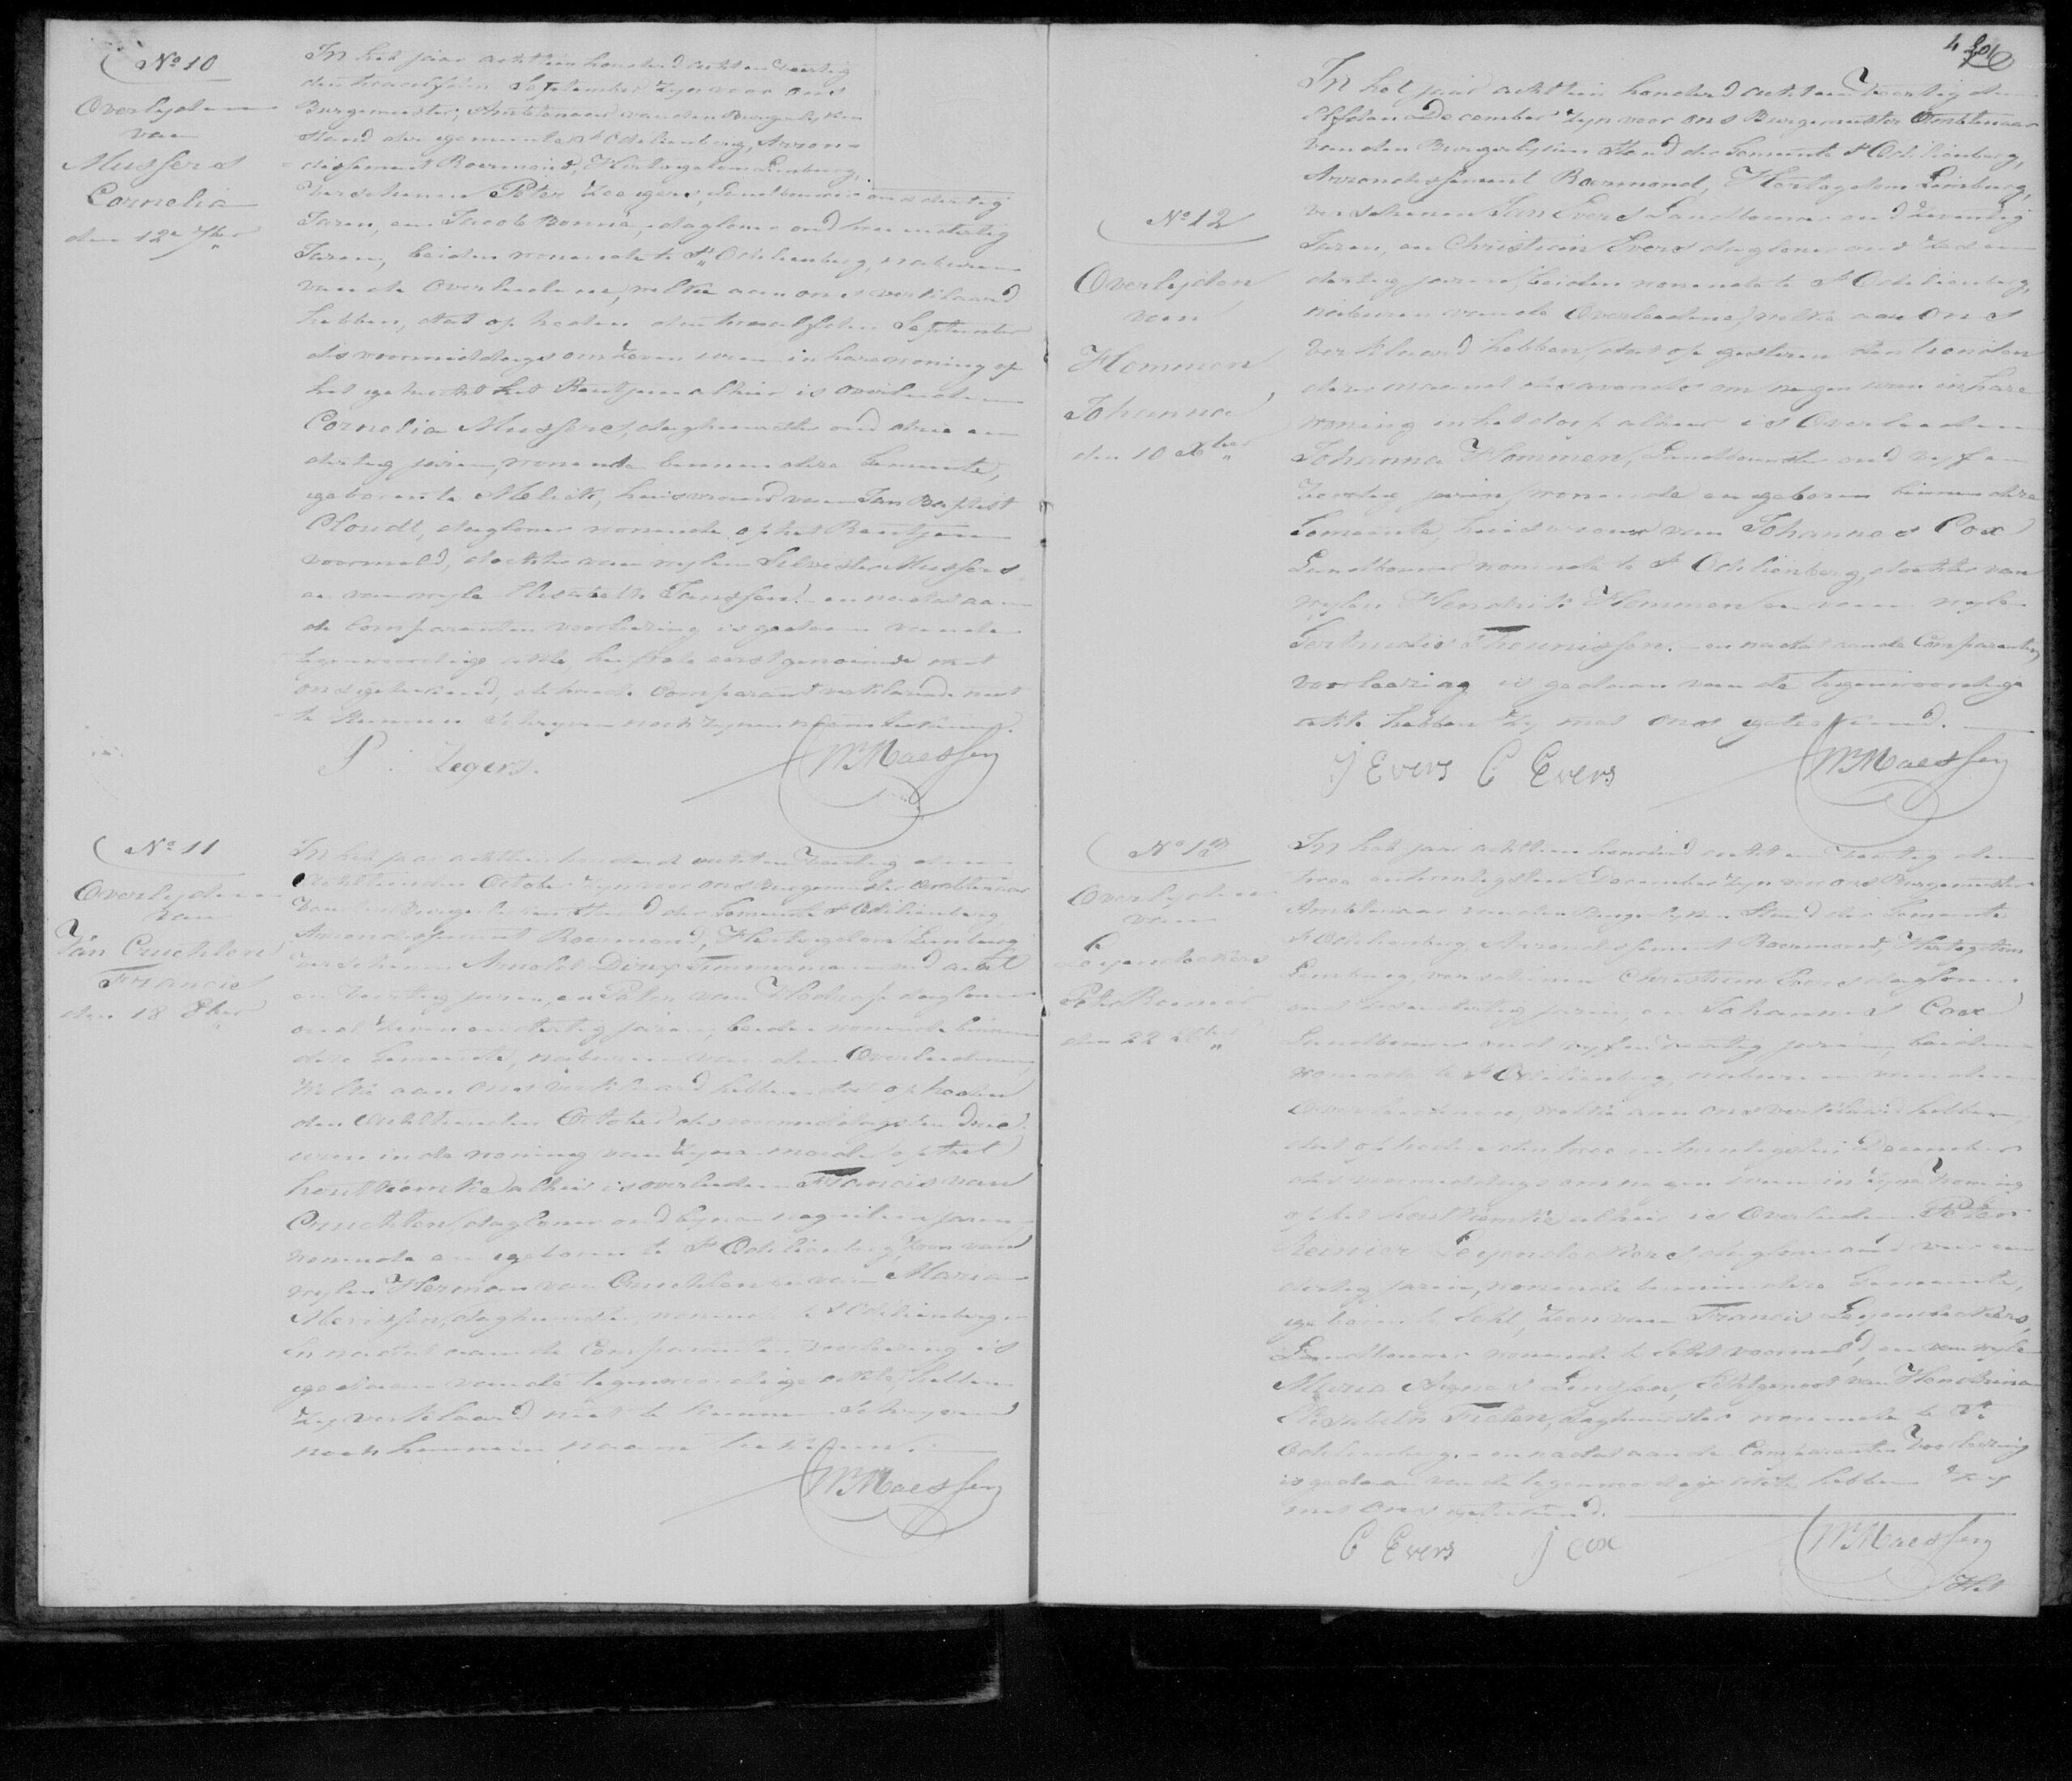 No 10
Overlyden
van
Mussers
Cornelia
den 12e 7ber
In het jaar achttien honderd acht en veertig
den twaalfden September zyn voor ons
Burgemeester, Ambtenaar van den Burgerlyken
Stand der gemeente St Odilienberg, Arron-
dissement Roermond, Hertogdom Limburg,
verschenen Peter Zeegers, Landbouwer oud dertig
Jaren, en Jacob Bonné, dagloner oud een en dertig
Jaren, beiden wonende te St Odilienberg, naburen
van de Overledene, welke aan ons verklaard
hebben, dat op heden den twaalfden September
des voormiddags om zeven uren in hare woning op
het gehucht het Reutjen alhier is overleden
Cornelia Mussers, daghuurster oud drie en
dertig jaren, wonende binnen deze Gemeente,
geboren te Melick, huisvrouw van Jan Baptist
Cloudt, dagloner wonende op het Reutjen
voormeld, dochter van wylen Silvester Mussers
en van wyle Elisabeth Janssen. en nadat aan
de Comparanten voorlezing is gedaan van de
tegenwoordige akte, heeft de eerstgenoemde met
ons getekend, de tweede Comparant verklarende niet
te kunnen schryven noch zynen naam tekenen.
P. Zegers. Maessen
No 11
Overlyden
van
Van Cruchten
Francis
den 18 8ber
In het jaar achttien honderd acht en veertig den
Achttienden October zyn voor ons Burgemeester Ambtenaar
van den Burgerlyken Stand der Gemeente St Odilienberg
Arrondissement Roermond, Hertogdom Limburg
verschenen Arnold Dirx Timmerman oud acht
en veertig jaren, en Peter van Vlodrop dagloner
oud zeven en dertig jaren, beiden wonende binnen
deze Gemeente, naburen van den Overledenen,
Welke aan ons verklaard hebben dat op heden
den Achttienden October des voormiddags ten drie
uren in de woning van zyne moeder op het
alhier is overleden Francis van
Cruchten dagloner oud byna negentien jaren
wonende en geboren te St Odilienberg, Zoon van
wylen Herman van Cruchten en van Maria
daghuurster wonende te St Odilienberg.
En nadat aan de Comparanten voorlezing is
gedaan van de tegenwoordige akte, hebben
zy verklaard niet te kunnen schryven
noch hunnen naam tekenen.
Maessen
No 12
Overlyden
van
Hommen
Johanna
den 10 Xber
In het jaar achttien honderd acht en veertig den
Elfden December zyn voor ons Burgemeester Ambtenaar
van den Burgerlyken Stand der Gemeente St Odilienberg,
Arrondissement Roermond, Hertogdom Limburg,
verschenen Jan Evers Landbouwer oud zeventig
Jaren, en Christian Evers dagloner oud zes en
dertig jaren, beiden wonende te St Odilienberg,
naburen van de Overledene, welke aan Ons
Verklaard hebben, dat op gisteren den tienden
dezer maand des avonds om negen uren in hare
woning in het dorp alhier is Overleden
Johanna Hommen, Landbouwster oud vyf en
veertig jaren, wonende en geboren binnen deze
Gemeente, huisvrouw van Johannes Cox
Landbouwer wonende te St Odilienberg, dochter van
wylen Hendrik Hommen en van wyle
Gertrudis Theunissen. en nadat aan de Comparanten
voorlezing is gedaan van de tegenwoordige
akte hebben zy met ons getekend.
J Evers C Evers Maessen
No 13
Overlyden
van
Leyendeckers
Peter Reinier
den 22 Xber
In het jaar achttien honderd acht en veertig den
twee en twintigsten December zyn voor ons Burgemeester
Ambtenaar van den Burgerlyken Stand der Gemeente
St Odilienberg, Arrondissement Roermond, Hertogdom
Limburg, verschenen Christian Evers dagloner
oud zes en dertig jaren, en Johannes Cox
Landbouwer oud vyf en veertig jaren, beiden
wonende te St Odilienberg, naburen van den
Overledenen, welke aan ons verklaard hebben,
dat op heden den twee en twintigsten December
des voormiddags om negen uren in zyne woning
op het alhier is Overleden Peter
Reinier Leyendeckers, dagloner oud vier en
dertig jaren, wonende binnen deze Gemeente,
geboren te Echt, zoon van Francis Leyendeckers,
Landbouwer wonende te Echt voormeld, en van wyle
Maria Agnes Linssen, Echtgenoot van Hendrina
Elisabeth Freten, daghuurster wonende te St
Odilienberg. en nadat aan de Comparanten Voorlezing
is gedaan van de tegenwoordige akte hebben zy
met ons getekend.
C Evers J Cox Maessen
Het